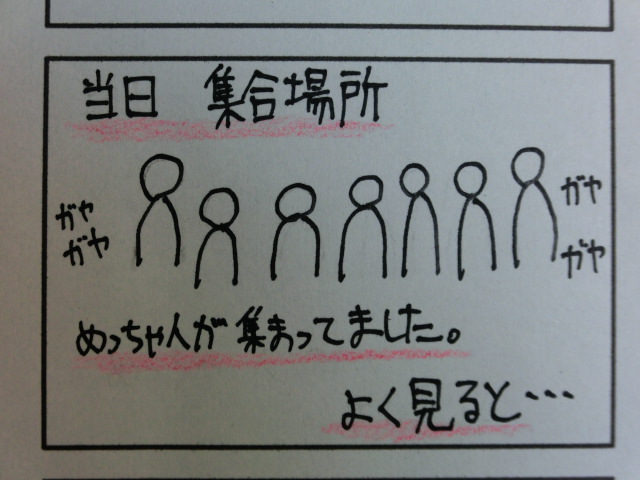 当日 集合場所
ガヤ
ガヤ
ガヤ
ガヤ
めっちゃ人が集まってました。
よく見ると…